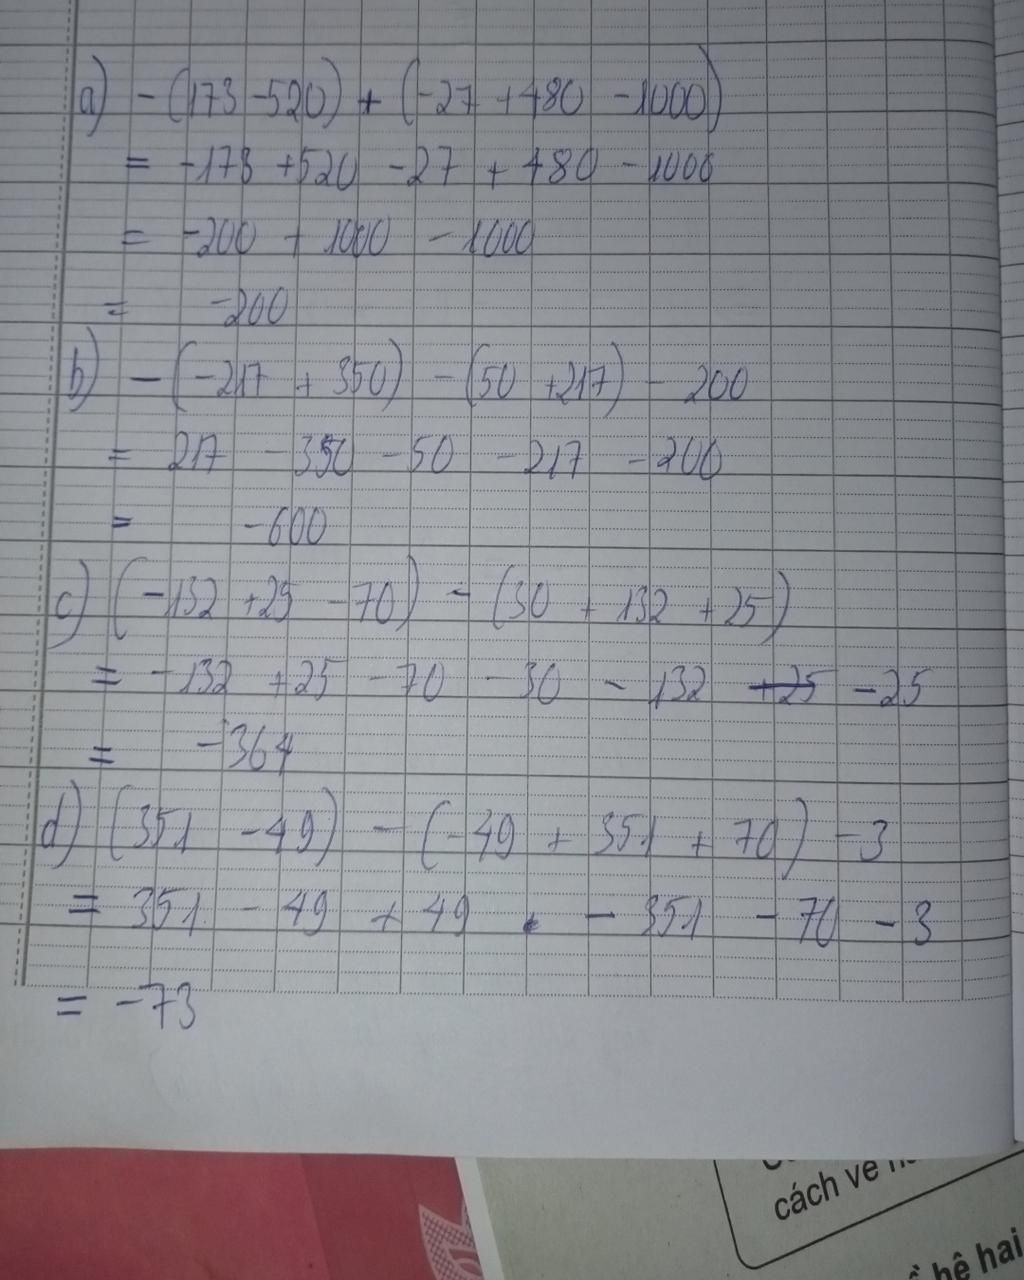 a) -(173 -520) + (-27 +480 -1000)
= -173 +520 -27 + 480 -1000
= -200 + 1000 -1000
= -200
b) -(-217 + 350) -(50 +217) - 200
= 217 -350 -50 -217 -200
= -600
c) (-132 +25 -70) - (30 + 132 +25)
= -132 +25 -70 -30 - 132 +25 -25
= -364
d) (351 -49) -(-49 + 351 + 70) -3
= 351 - 49 + 49 - 351 - 70 -3
= -73
cách vẽ
hệ hai